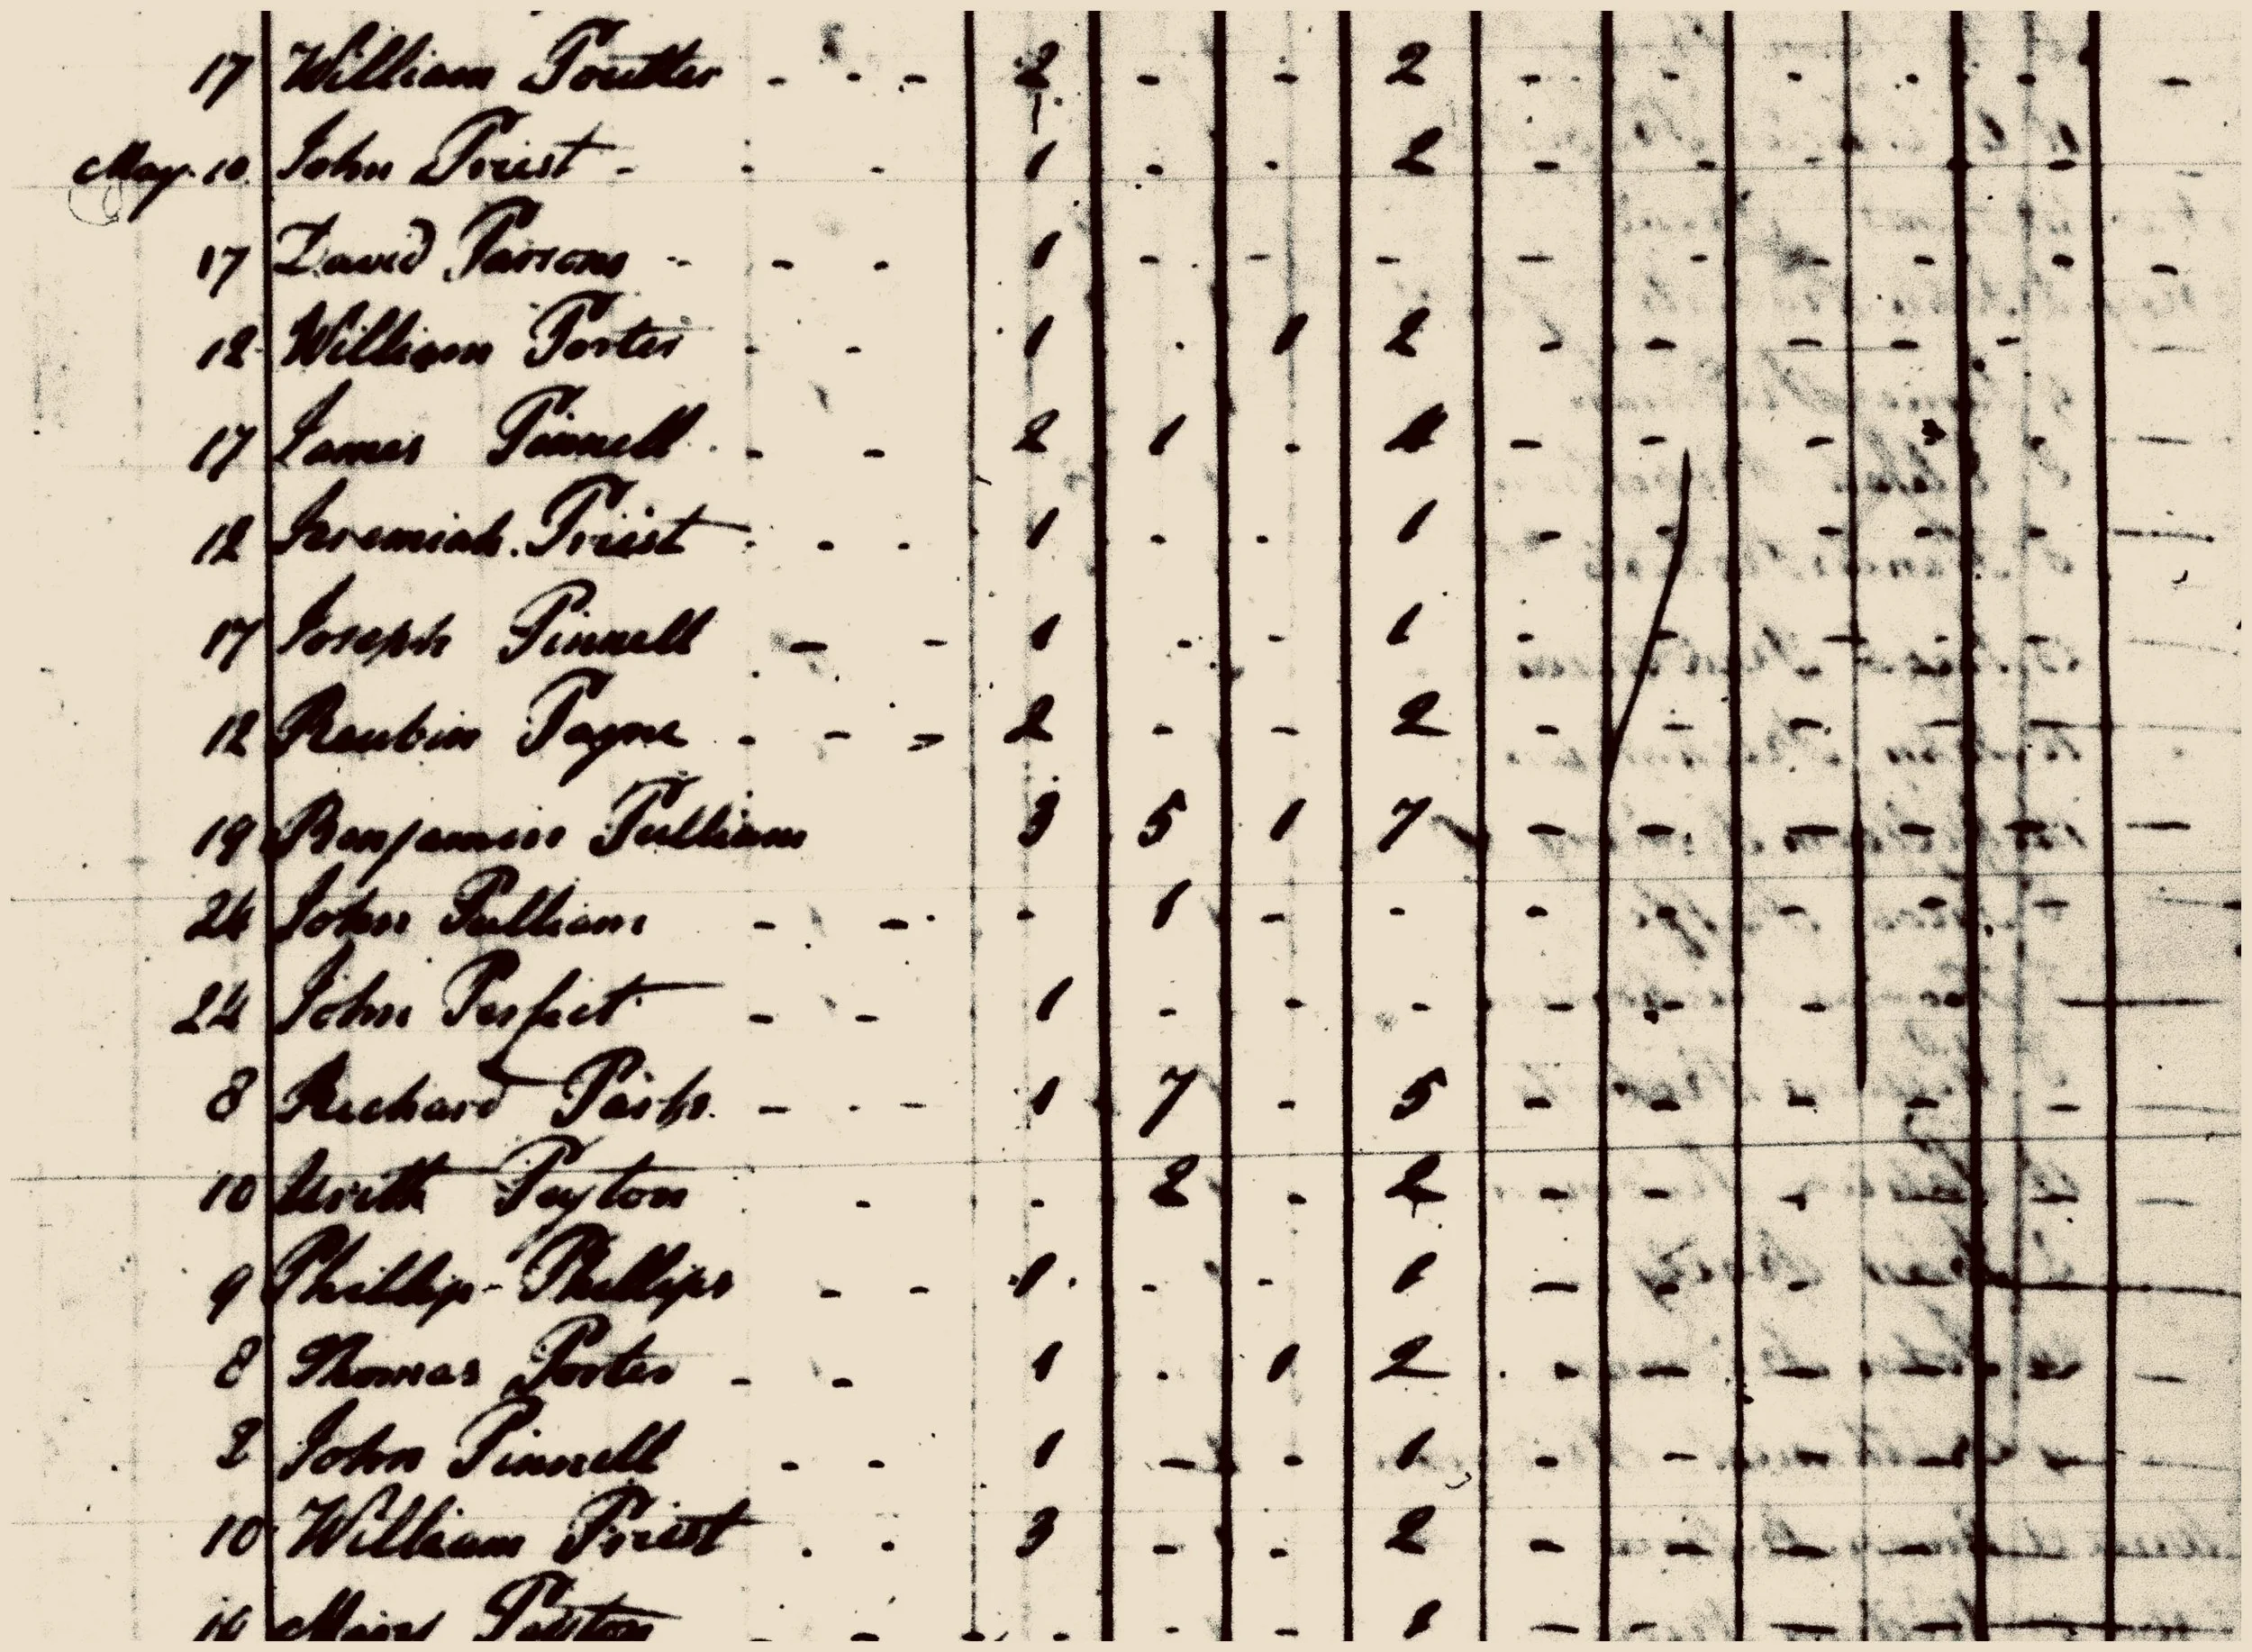 17 William Poulter - - - 2 - - 2 - - - - - -
May 10 John Priest - - - 1 - - 2 - - - - -
17 David Parsons - - - 1 - - - - - - - - -
12 William Porter - - 1 - 1 2 - - - - -
17 James Pinnell - - 2 1 - 4 - - - - -
12 Jeremiah Priest - - - 1 - - 1 - - - - -
17 Joseph Pinnell - - 1 - - 1 - - - - -
12 Reubin Payne - - - 2 - - 2 - - - - -
19 Benjamin Pulliam 3 5 1 7 - - - - - -
24 John Pulliam - - - 1 - - - - - - -
24 John Perfect - - 1 - - - - - - - -
8 Richard Parks - - - 1 7 - 5 - - - - - -
10 Peyton - - 2 - 2 - - - - - -
9 Phillip Phillips - - 1 - - 1 - - - -
8 Thomas Porter - - 1 - 1 2 - - - - - -
8 John Pinnell - - 1 - - 1 - - - - -
10 William Priest - - 3 - - 2 - - - -
- - - - 1 - - - -